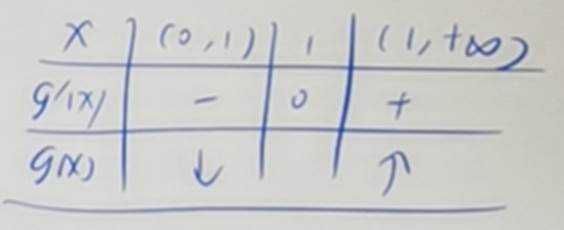 x (0,1) 1 (1,+∞)
g'(x) - 0 +
g(x) ↓ ↑